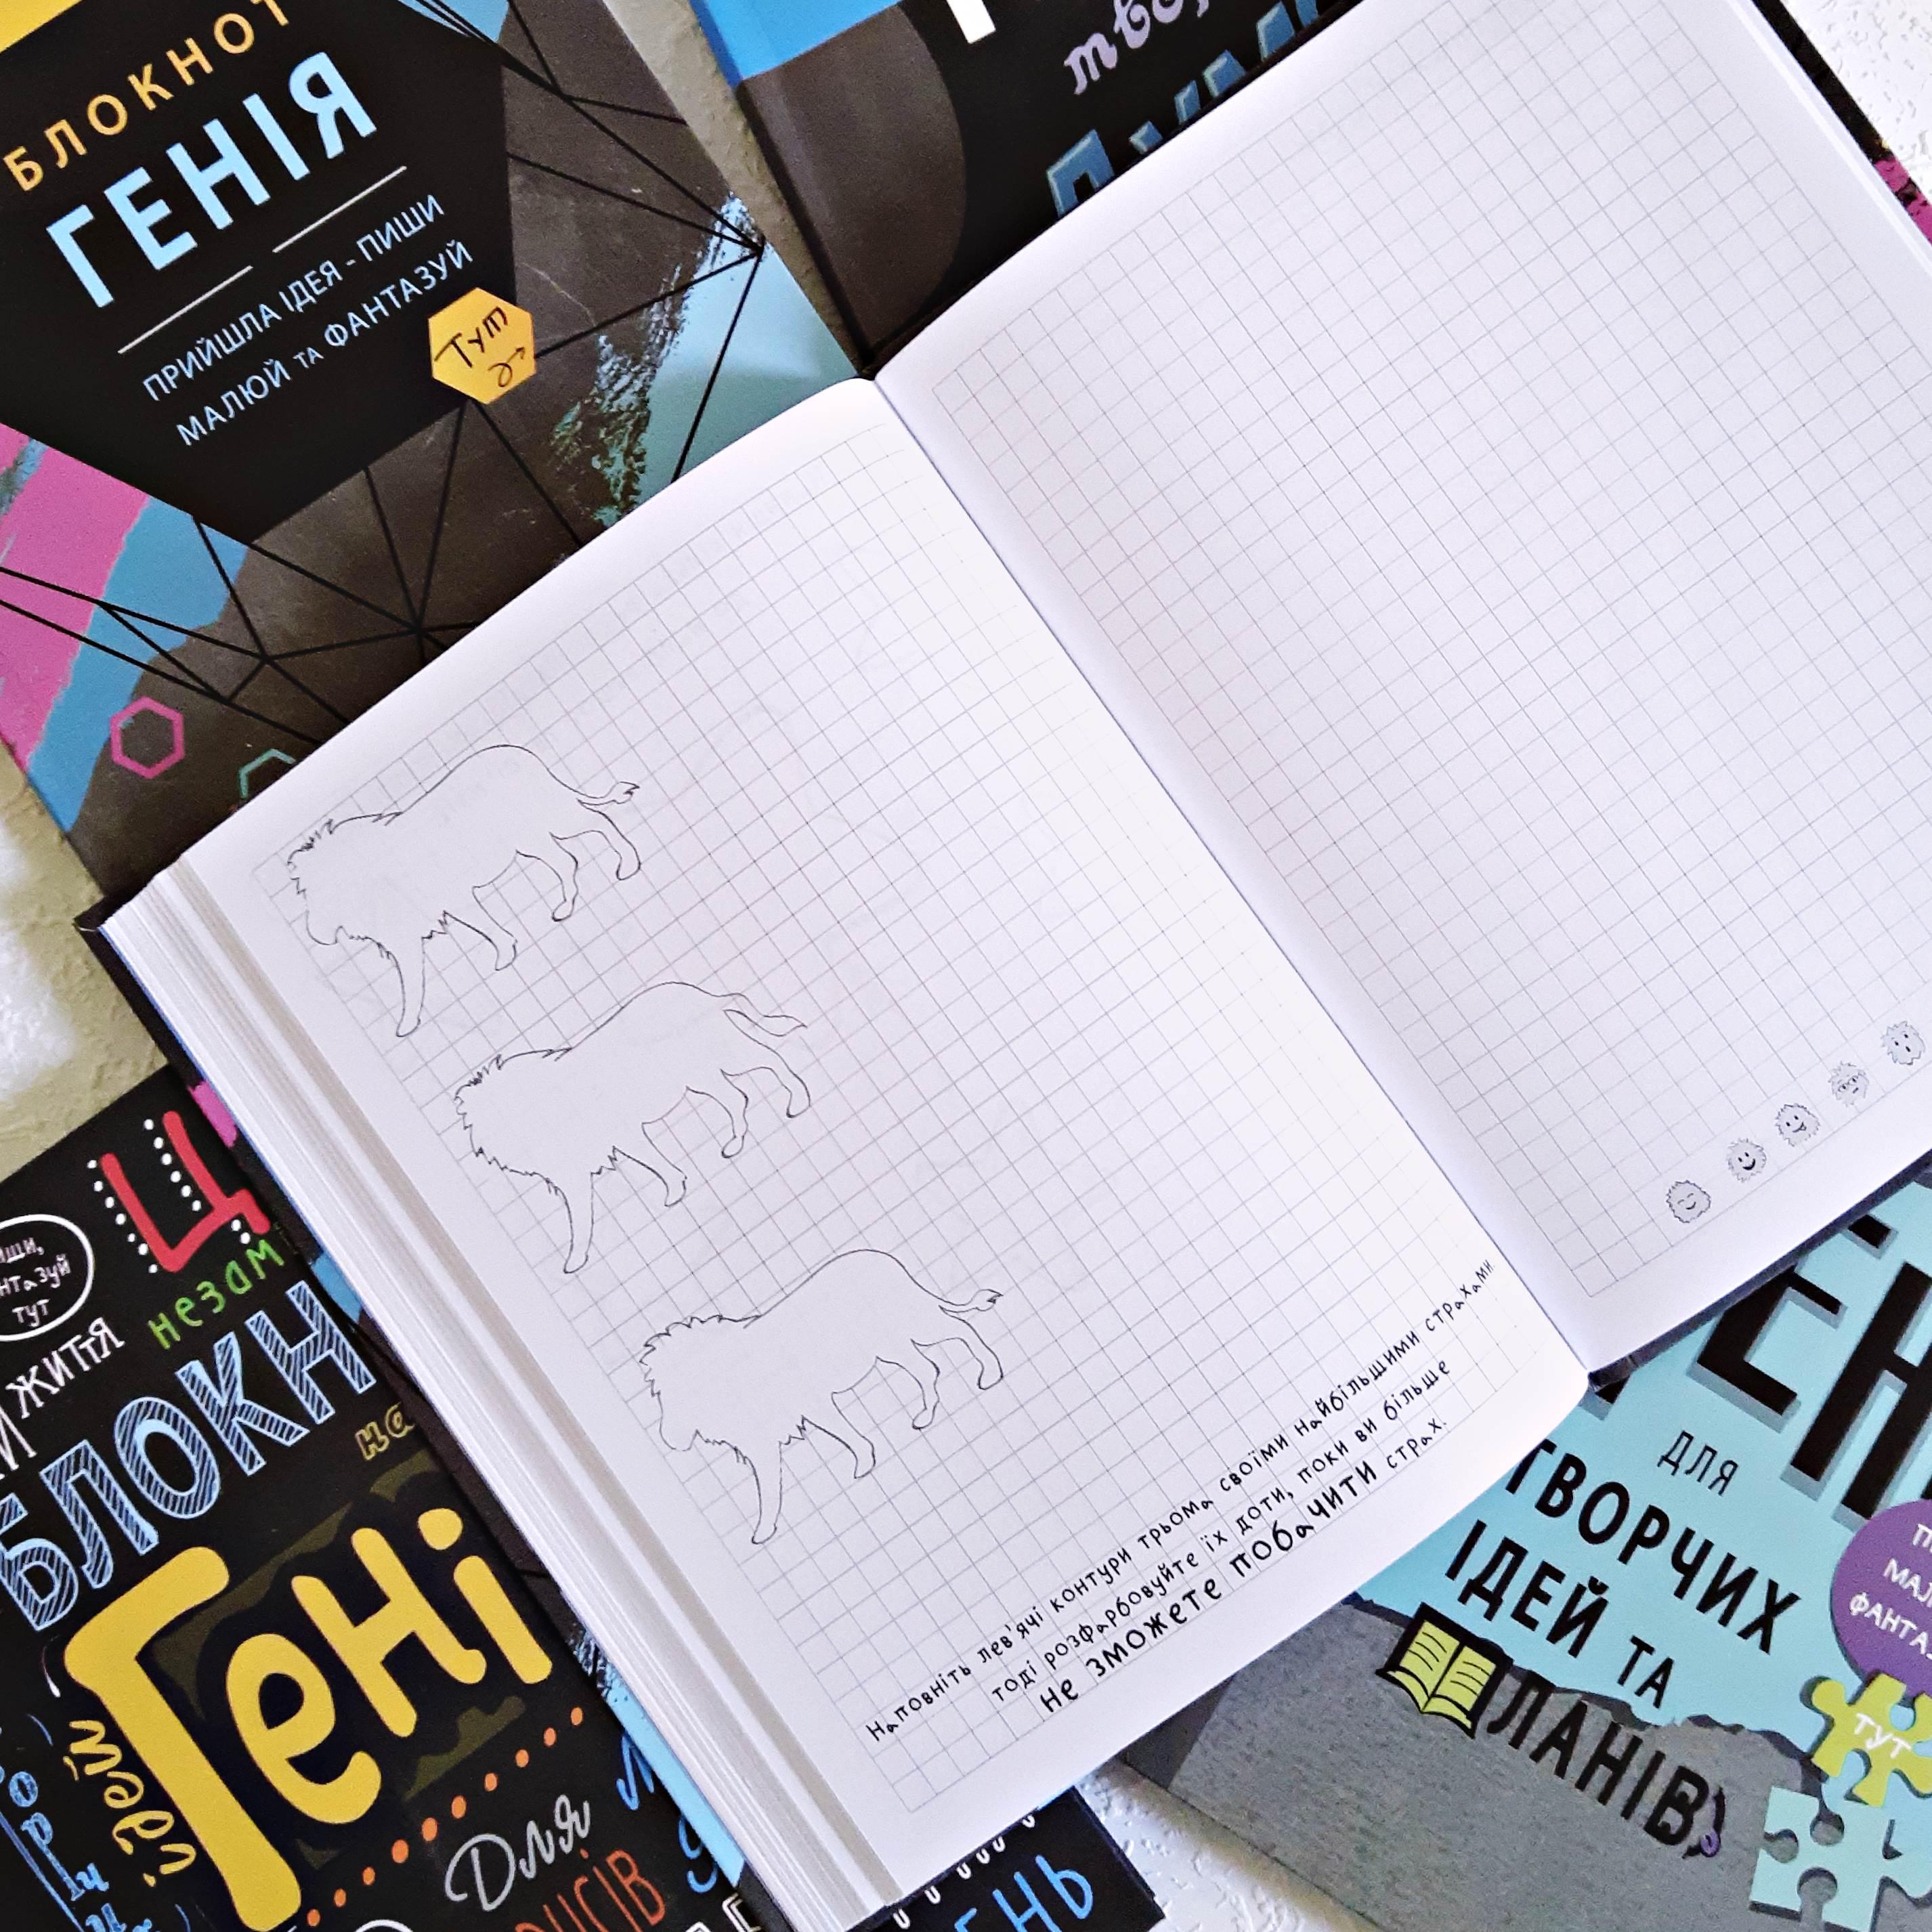 БЛОКНОТ
ГЕНІЯ
ПРИЙШЛА ІДЕЯ - ПИШИ
МАЛЮЙ ТА ФАНТАЗУЙ
Тут
Наповніть лев'ячі контури трьома своїми найбільшими страхами
тоді розфарбовуйте їх доти, поки ви більше
не зможете побачити страх.
тут
ЖИТТЯ
незам
БЛОКН
на
Гені
ідей
Для
ЕНЬ
ДЛЯ
ТВОРЧИХ
ІДЕЙ ТА
ЛАНІВ
ТУТ